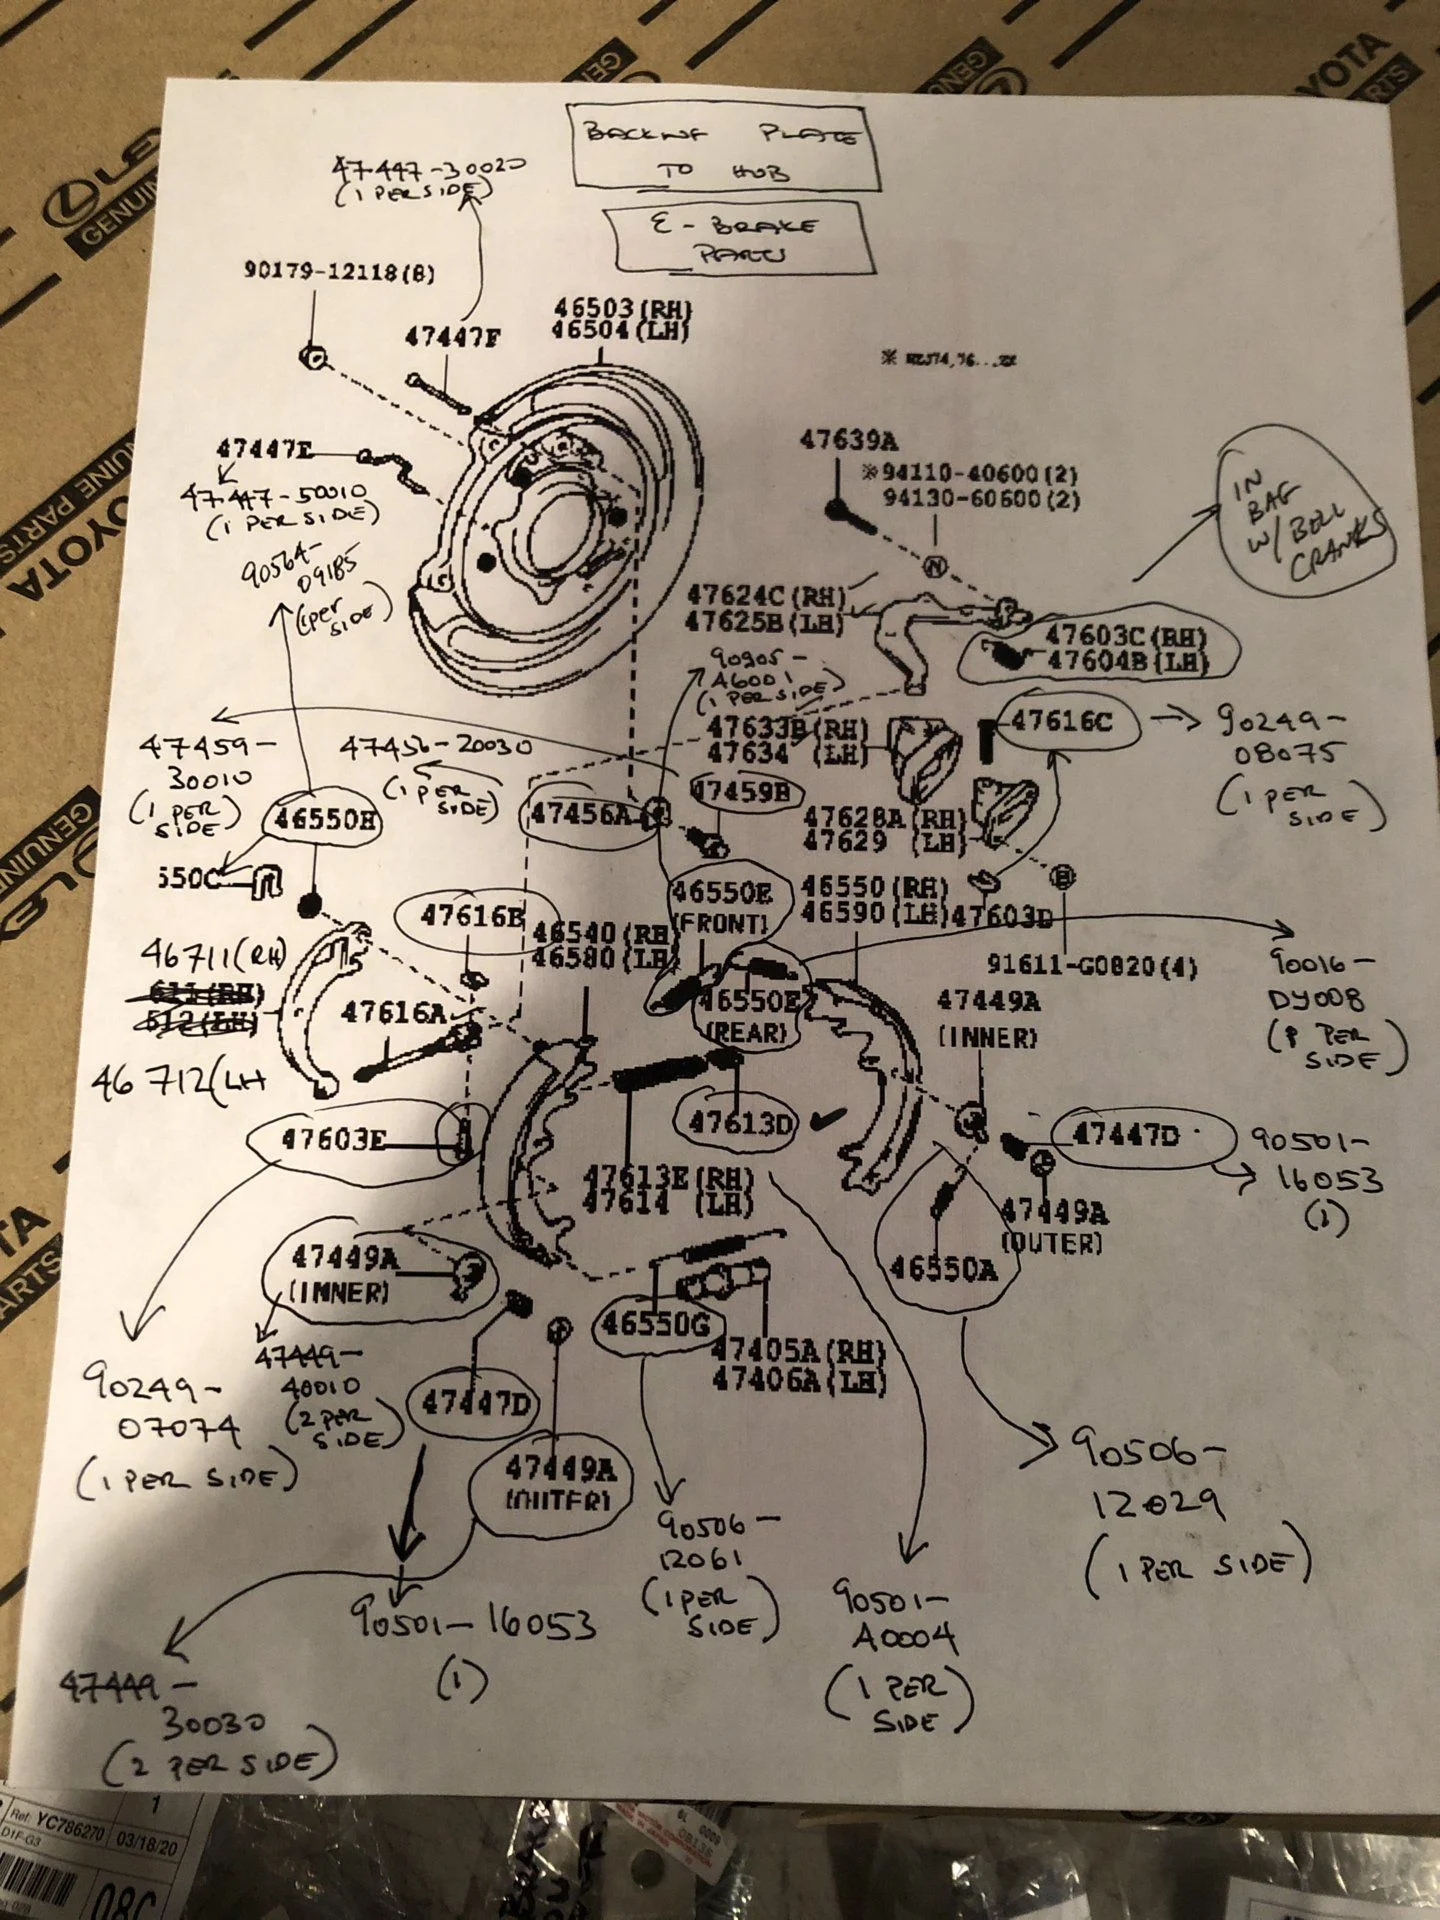 BACKING PLATE
TO HUB
E-BRAKE
PARTS
47447-30020
(1 PER SIDE)
90179-12118(8)
47447F
46503(RH)
46504(LH)
※ HZJ74,76...ZX
47447E
47447-50010
(1 PER SIDE)
90564-
09185
(1per
SIDE)
47639A
※94110-40600(2)
94130-60600(2)
IN
BAG
W/ BELL
CRANKS
47624C(RH)
47625B(LH)
47603C(RH)
47604B(LH)
A6001
(1 PER SIDE)
47633B(RH)
47634 (LH)
47616C
90249-
08075
(1 PER
SIDE)
47459-
30010
(1 PER
SIDE)
47456-20030
(1 PER
SIDE)
47459B
47456A
46550H
47628A(RH)
47629 (LH)
550C
46550E
(FRONT)
46550(RH)
46590(LH)
47603D
47616B
46540(RH)
46580(LH)
91611-G0820(4)
90016-
DY008
PER
SIDE)
46711(RH)
611(RH)
512(LH)
46712(LH
47616A
46550E
(REAR)
47449A
(INNER)
47603E
47613D
47447D
90501-
16053
(1)
47613E(RH)
47614 (LH)
47449A
(OUTER)
46550A
47449A
(INNER)
46550G
47405A(RH)
47406A(LH)
47449-
40010
(2 PER
SIDE)
90249-
07074
(1 PER SIDE)
47447D
47449A
(OUTER)
90506-
12061
(1 PER
SIDE)
90506-
12029
(1 PER SIDE)
90501-16053
(1)
90501-
A0004
(1 PER
SIDE)
47449-
30030
(2 PER SIDE)
TOYOTA
GENUINE PARTS
Ref: YC786270
D1F-G3
03/18/20
1
08C